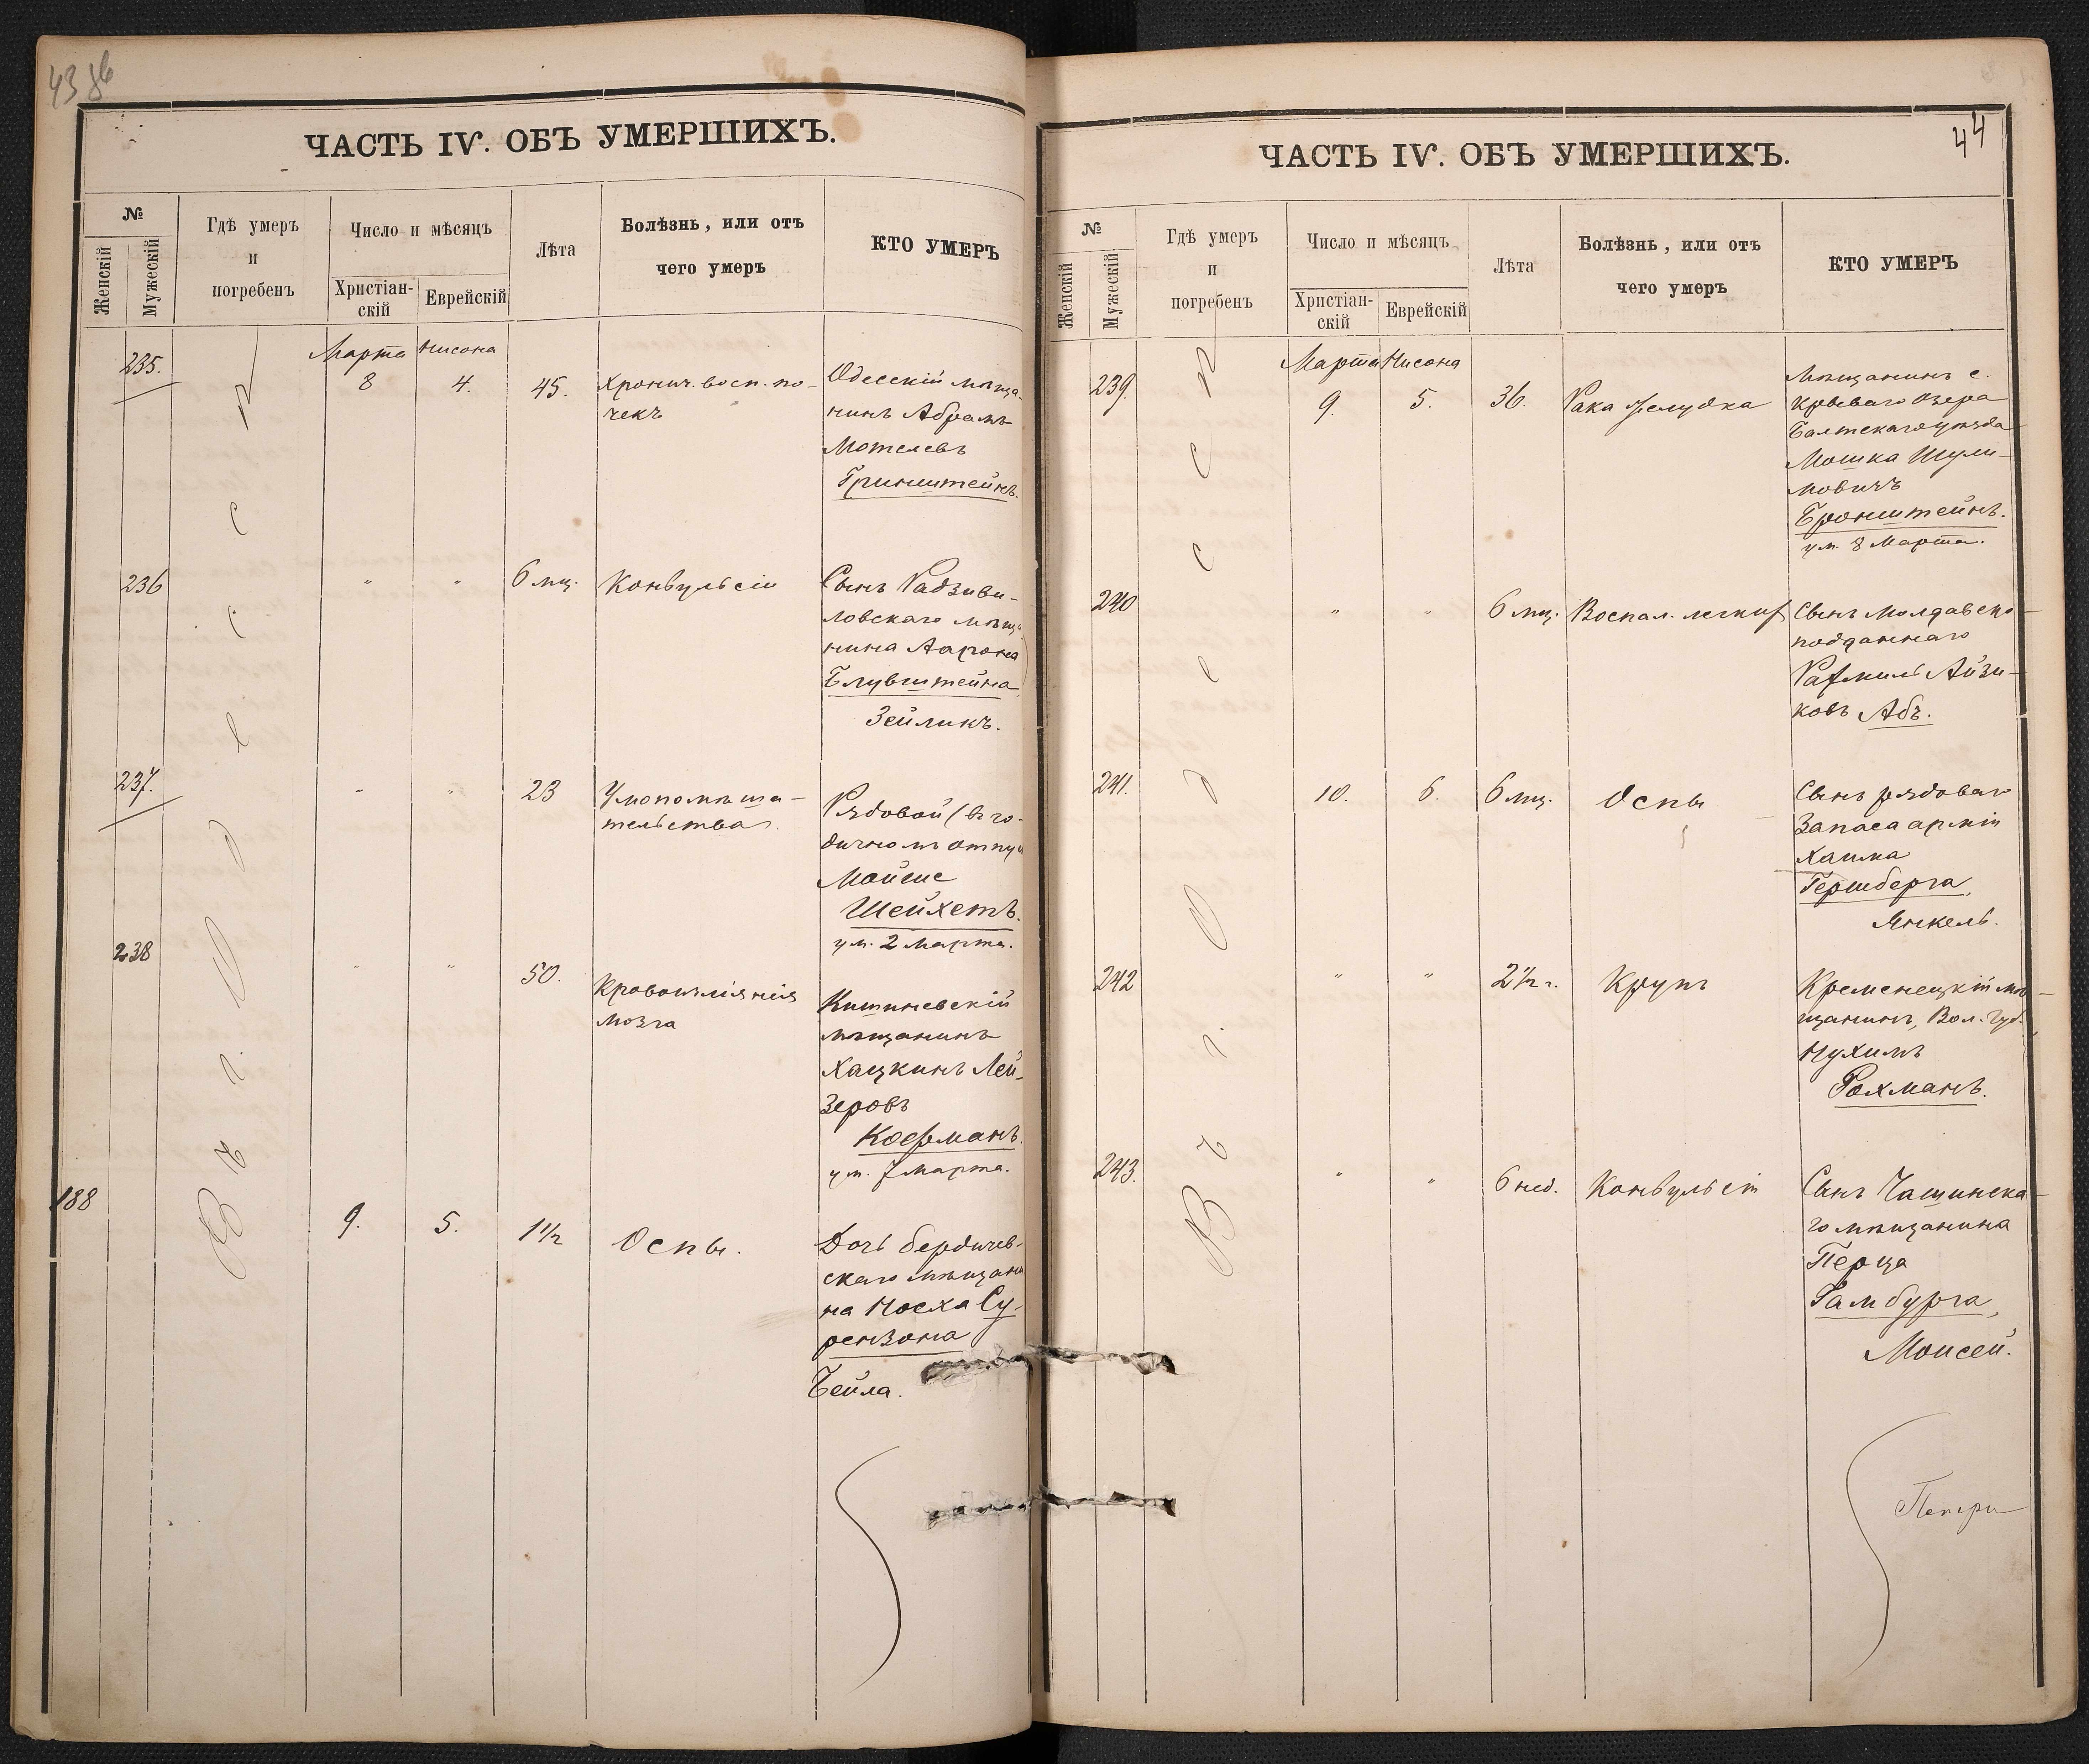 43 об
ЧАСТЬ IV. ОБЪ УМЕРШИХЪ.
№
Женскій
Мужескій
Гдѣ умеръ
и
погребенъ
Число и мѣсяцъ
Христіан-
скій
Еврейскій
Лѣта
Болѣзнь, или отъ
чего умеръ
КТО УМЕРЪ
Въ г. Одессѣ
Марта Нисона
235.
8
4.
45.
Хронич. восп. по-
чекъ
Одесскій мѣща-
нинъ Абрамъ
Мотелевъ
Гринштейнъ.
236
"
"
6 мц.
Конвульсіи
Сынъ Радзиви-
ловскаго мѣща
нина Аарона
Блувштейна
Зейликъ.
237.
"
"
23
Умопомѣша-
тельства
Рядовой (въ го-
дичномъ отпу
Мойше
Шейхетъ.
ум. 2 марта.
238
"
"
50.
Кровоизліянія
мозга
Кишиневскій
мѣщанинъ
Хацкинъ Лей-
зеровъ
Кофманъ.
ум. 7 марта.
188
9.
5.
1 1/2
Оспы.
Дочь бердичев-
скаго мѣщани
на Носха Су-
рензона
Бейла.
44
ЧАСТЬ IV. ОБЪ УМЕРШИХЪ.
№
Женскій
Мужескій
Гдѣ умеръ
и
погребенъ
Число и мѣсяцъ
Христіан-
скій
Еврейскій
Лѣта
Болѣзнь, или отъ
чего умеръ
КТО УМЕРЪ
Въ г. Одессѣ
Марта Нисона
239.
9.
5.
36.
Рака желудка
Мѣщанинъ с.
Криваго Озера
Балтскаго уѣзда
Мошка Шули-
мовичъ
Бронштейнъ.
ум. 8 Марта.
240
"
"
6 мц.
Воспал. легких
Сынъ молдавско-
подданнаго
Рахмиль Айзи-
ковъ Абъ.
241.
10.
6.
6 мц.
Оспы
Сынъ рядоваго
Запаса арміи
Хаима
Гершберга,
Янкель.
242
"
"
2 1/2 г.
Крупъ
Кременецкій мѣ-
щанинъ, Вол. губ.
Нухимъ
Рохманъ.
243.
"
"
6 нед.
Конвульсіи
Сынъ Чашинска-
го мѣщанина
Перца
Гамбурга,
Моисей.